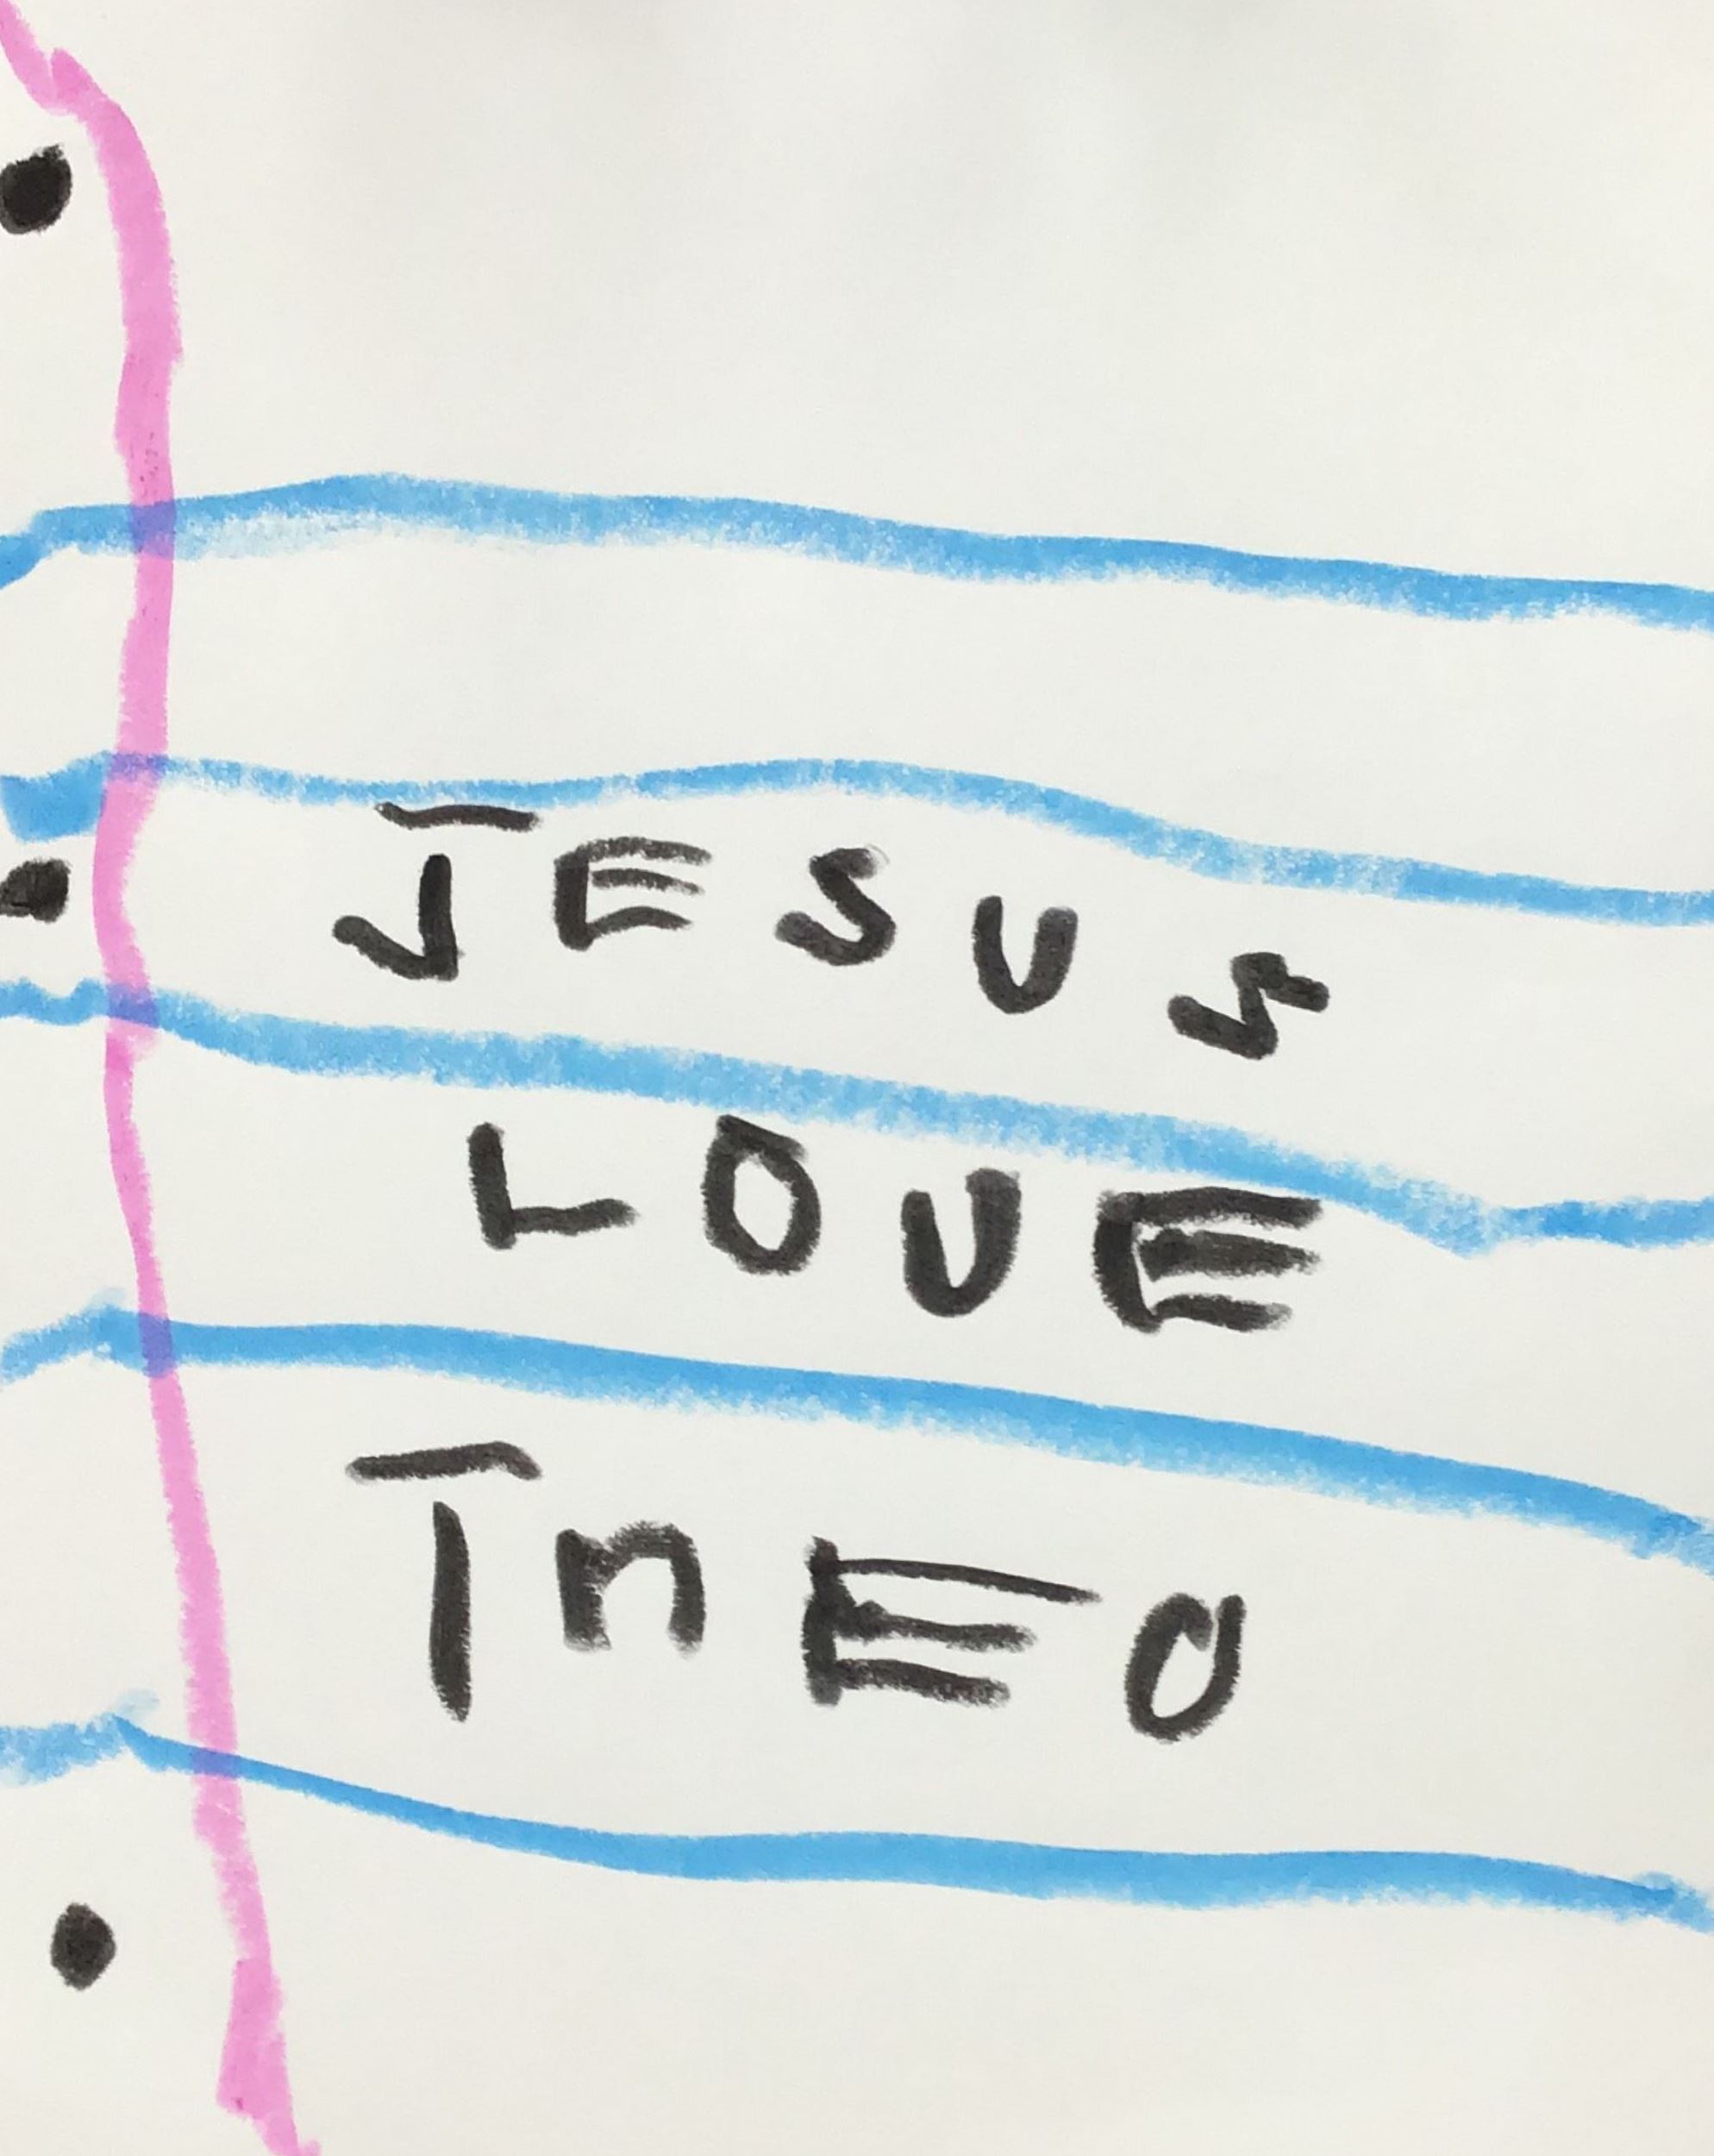 JESUS
LOVE
THEO